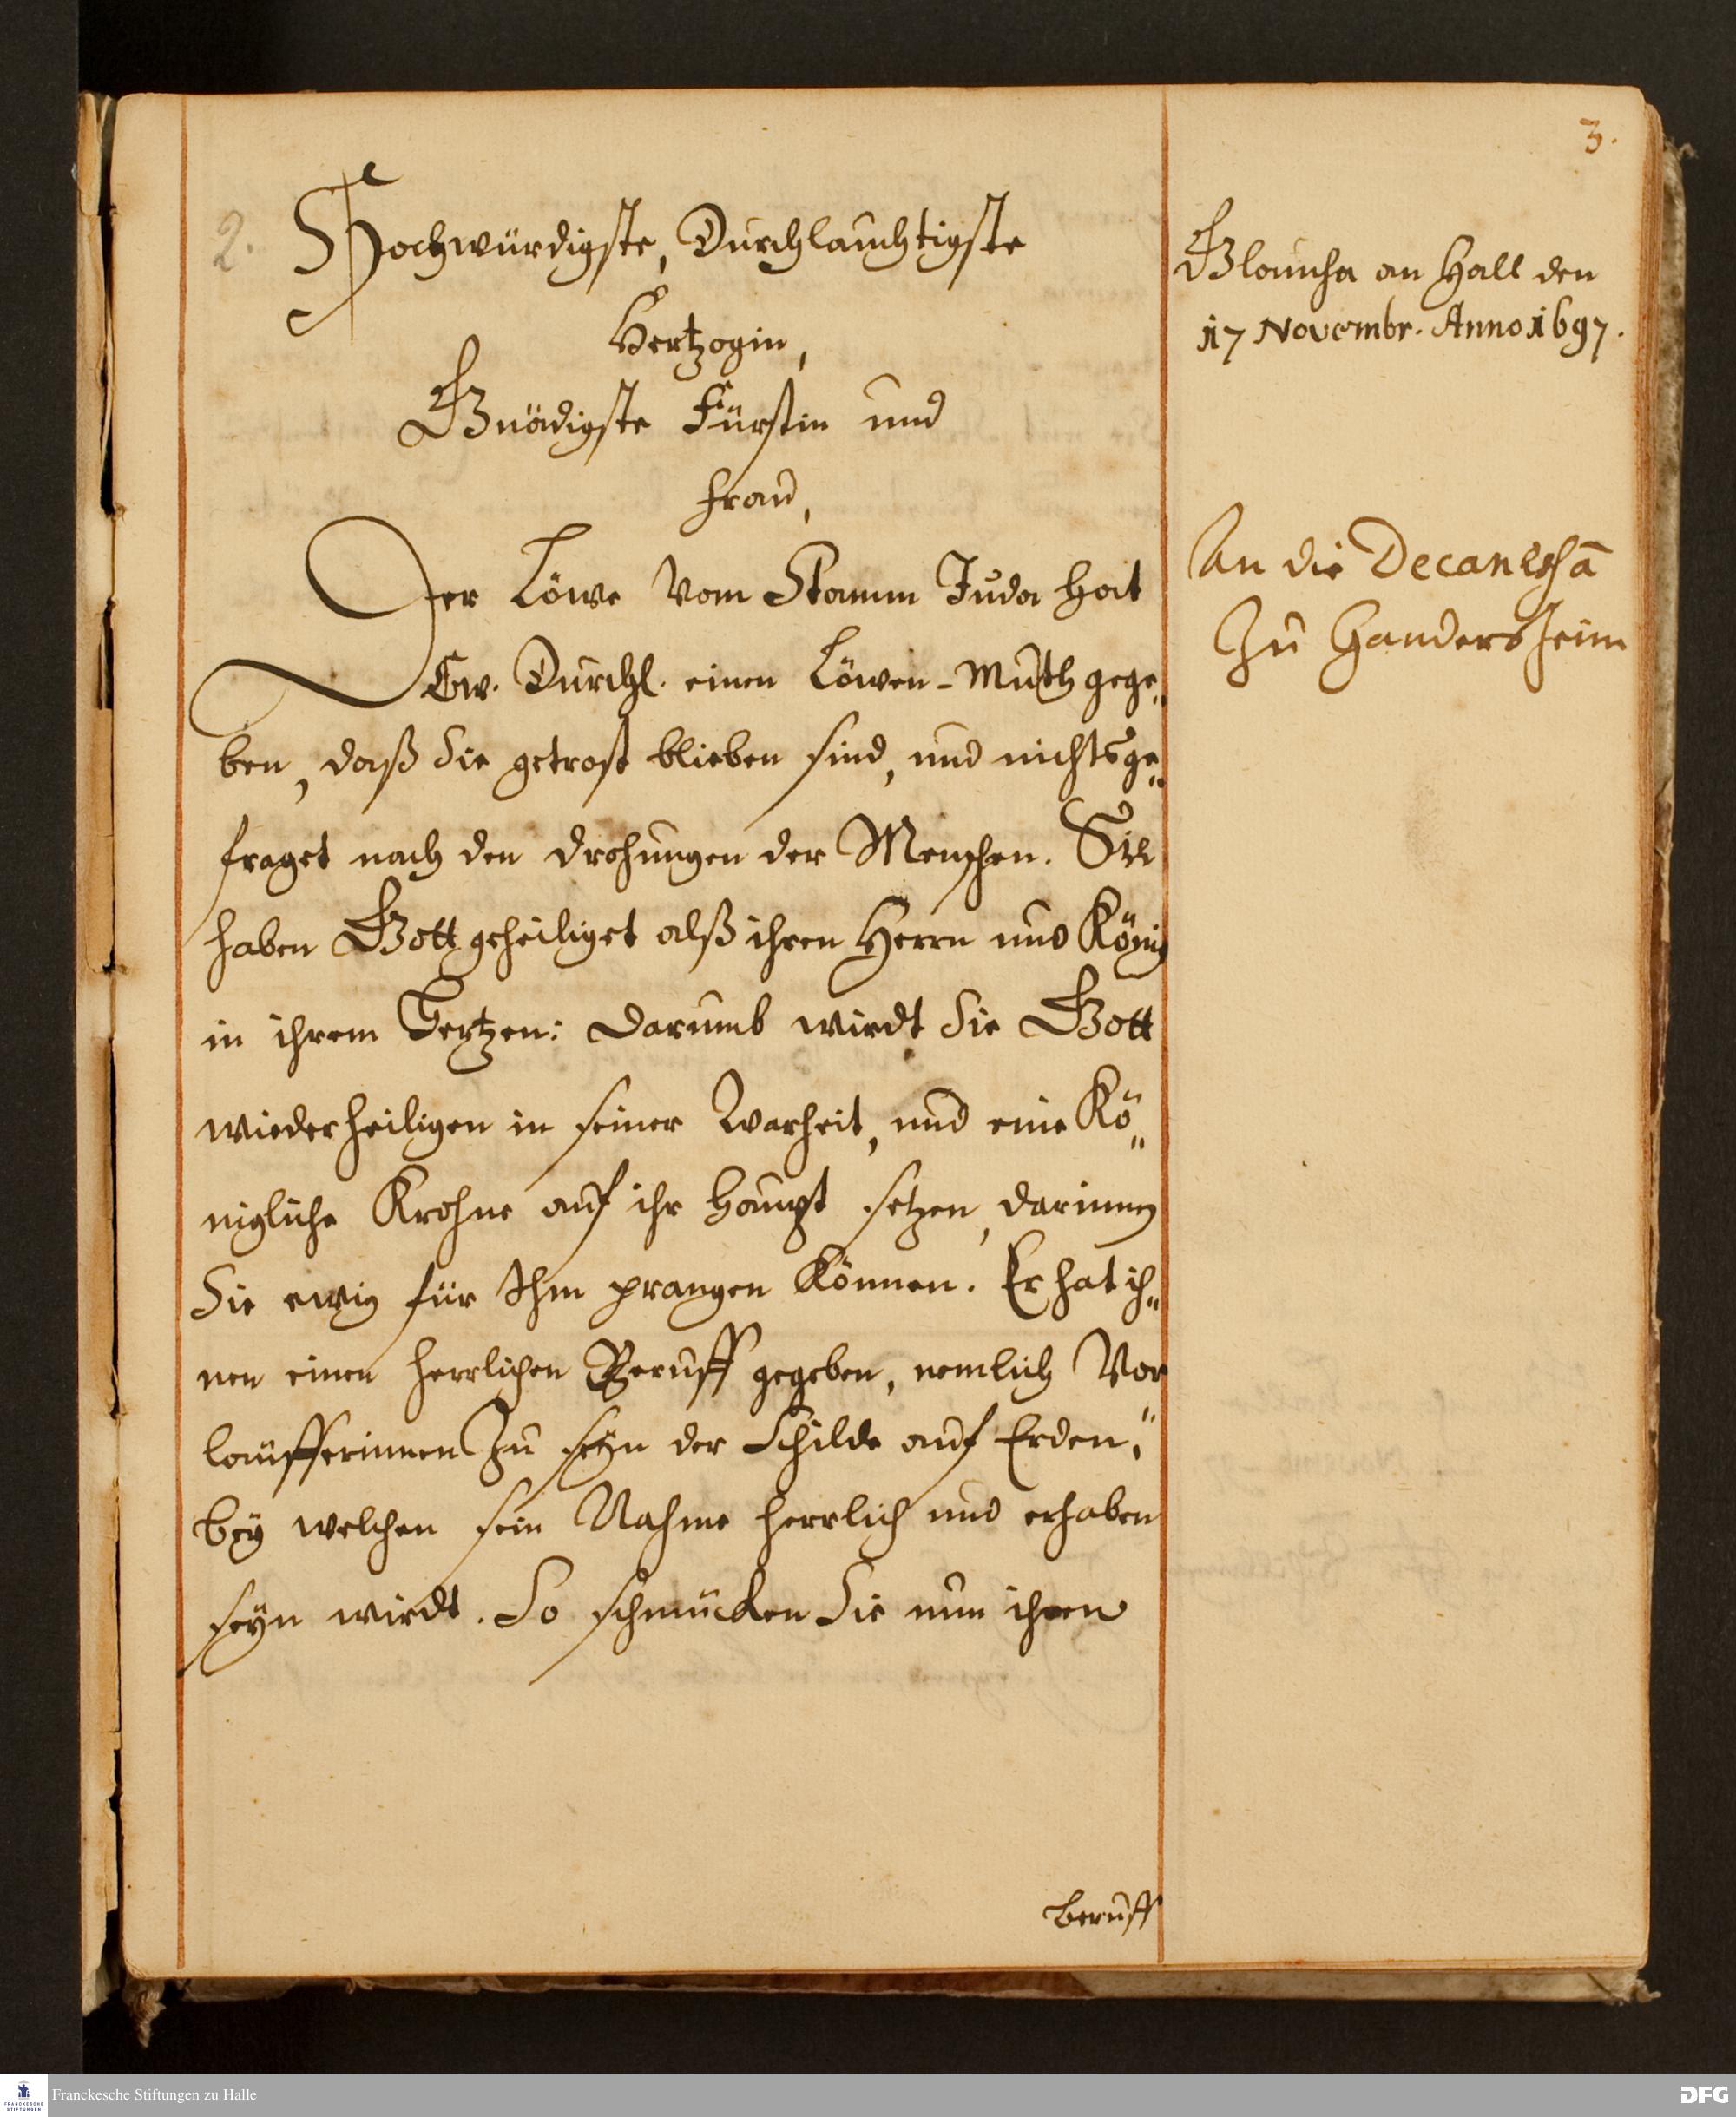 3.
2. Hochwürdigste, Durchlauchtigste
Hertzogin,
Gnädigste Fürstin und
Frau,
Glaucha an Hall den
17 Novembr. Anno 1697.
An die Decanessā
Zu Gandersheim
Der Löwe Vom Stamm Juda hat
Ew. Durchl. einen Löwen-Muth gege„
ben, daß Sie getrost blieben sind, und nichts ge„
fraget nach den drohungen der Menschen. Sie
haben Gott geheiliget alß ihren Herrn und König
in ihrem Hertzen: Darumb wirdt Sie Gott
wieder heiligen in seiner Warheit, und eine Kö„
nigliche Krohne auf ihr Haupt setzen, darinnen
Sie ewig für Ihm prangen Können. Er hat ih„
nen einen herrlichen Beruff gegeben, nemlich Vor„
läufferinnen Zu seyn der Schilde auf Erden,
bey welchen sein Nahme herrlich und erhaben
seyn wirdt. So schmücken Sie nun ihren
Beruff
Franckesche Stiftungen zu Halle
FRANCKESCHE
STIFTUNGEN
DFG